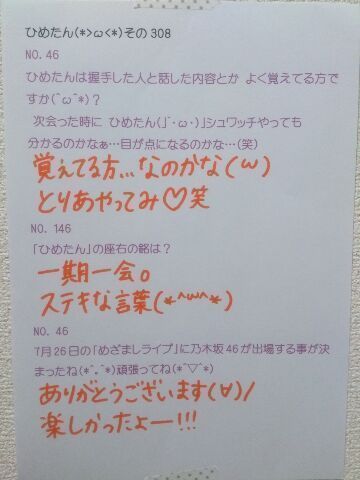 ひめたん(*>ω<*)その308
NO.46
ひめたんは握手した人と話した内容とか よく覚えてる方で
すか(^ω^*)？
次会った時に ひめたん(｣´･ω･)｣シュワッチやっても
分かるのかなぁ…目が点になるのかな…(笑)
覚えてる方…なのかな(ω)
とりあやってみ♡笑
NO.146
「ひめたん」の座右の銘は？
一期一会。
ステキな言葉(*^ω^*)
NO.46
7月26日の「めざましライブ」に乃木坂46が出場する事が決
まったね(*ﾟ.ﾟ*)頑張ってね(*^▽^*)
ありがとうございます(∀)/
楽しかったよー!!!